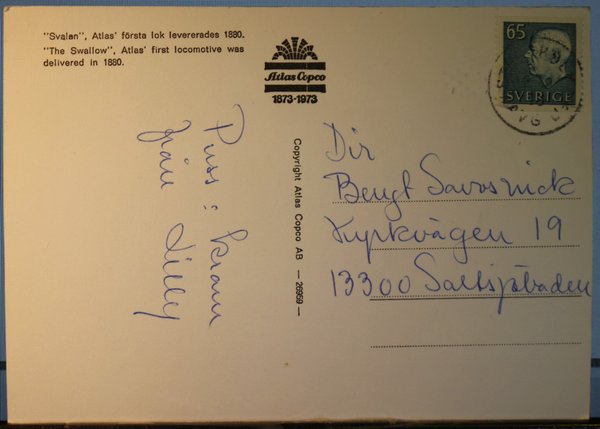 "Svalan", Atlas' första lok levererades 1880.
"The Swallow", Atlas' first locomotive was
delivered in 1880.
Atlas Copco
1873-1973
65
SVERIGE
Copyright Atlas Copco AB — 26959 —
Puss & kram
från Lilley
Dir
Bengt
Kyrkvägen 19
13300 Saltsjöbaden